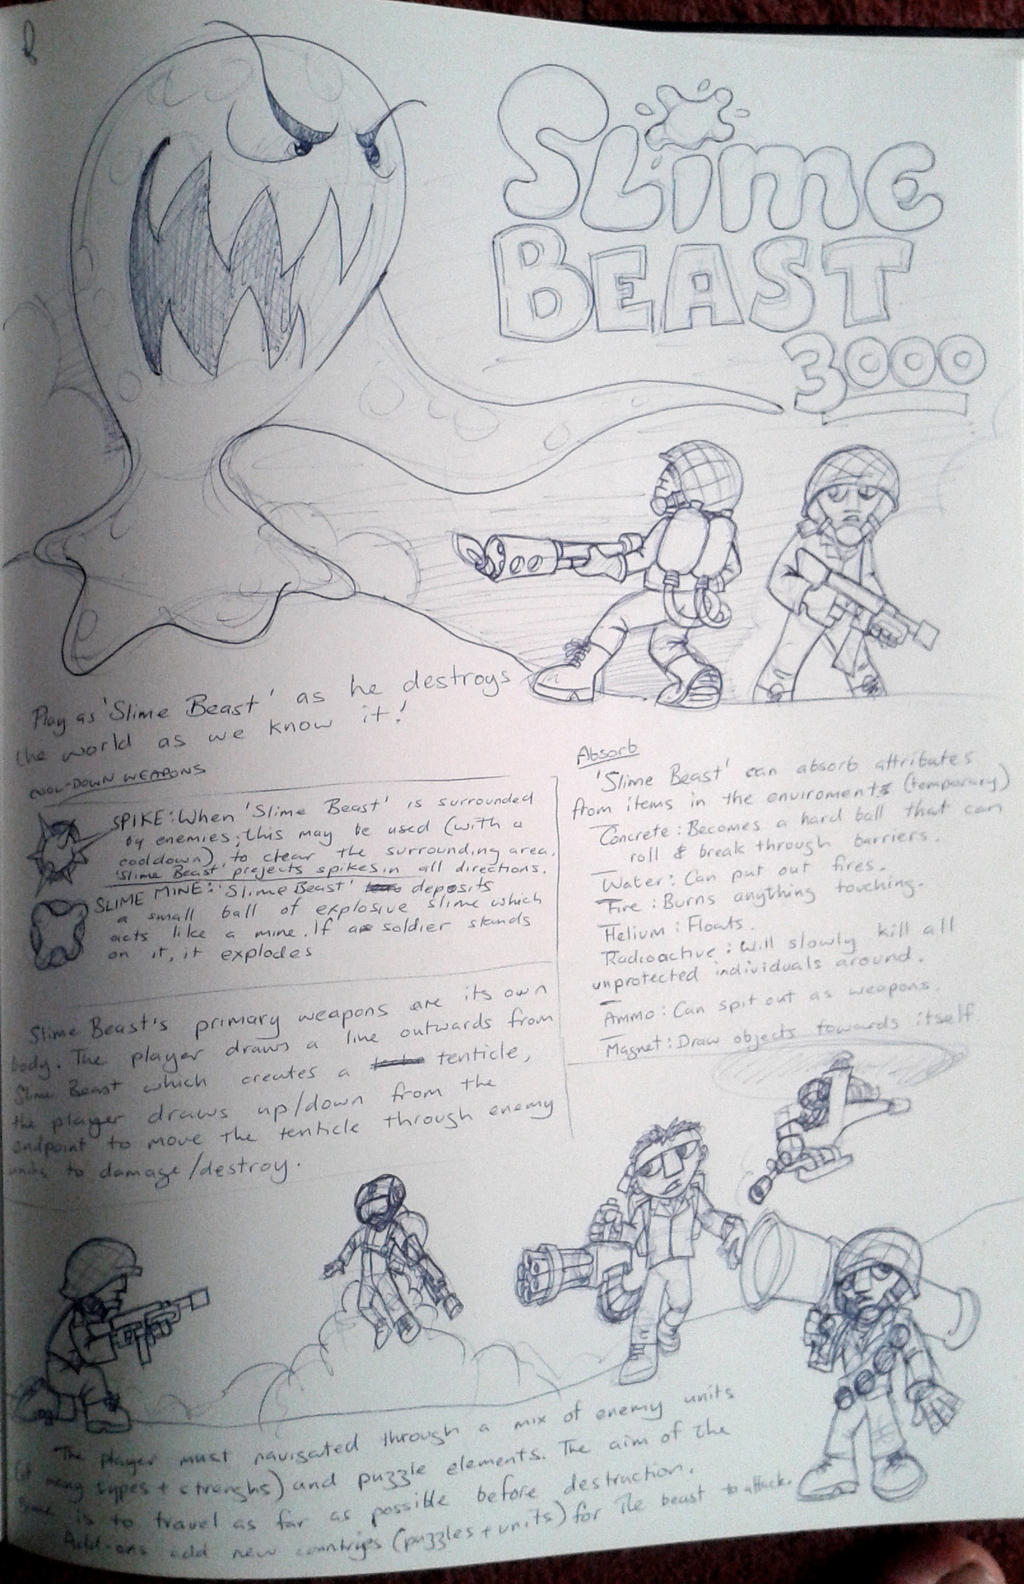 SLIME
BEAST
3000
Play as 'Slime Beast' as he destroys
the world as we know it!
COOL-DOWN WEAPONS
SPIKE: When 'Slime Beast' is surrounded
by enemies, this may be used (with a
cooldown), to clear the surrounding area.
'Slime Beast' projects spikes in all directions.
SLIME MINE: 'Slime Beast' deposits
a small ball of explosive slime which
acts like a mine. If a soldier stands
on it, it explodes
Slime Beast's primary weapons are its own
body. The player draws a line outwards from
Slime Beast which creates a tenticle,
the player draws up/down from the
endpoint to move the tenticle through enemy
units to damage/destroy.
Absorb
'Slime Beast' can absorb attributes
from items in the enviroments (temporary)
Concrete: Becomes a hard ball that can
roll & break through barriers.
Water: Can put out fires.
Fire: Burns anything touching.
Helium: Floats.
Radioactive: Will slowly kill all
unprotected individuals around.
Ammo: Can spit out as weapons.
Magnet: Draw objects towards itself.
The player must navigated through a mix of enemy units
(of many types + strenghs) and puzzle elements. The aim of the
game is to travel as far as possible before destruction.
Add-ons add new countries (puzzles + units) for the beast to attack.